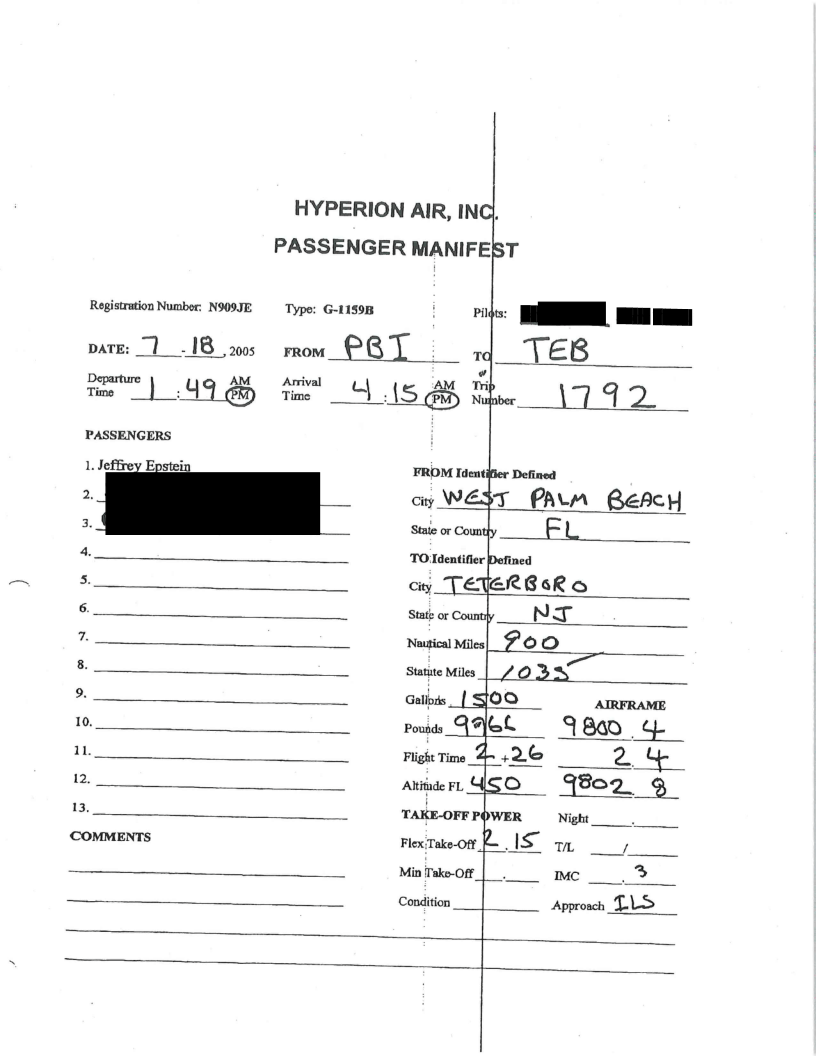 HYPERION AIR, INC.
PASSENGER MANIFEST
Registration Number: N909JE Type: G-1159B Pilots:
DATE: 7 - 18, 2005 FROM PBI TO TEB
Departure Time 1:49 AM PM Arrival Time 4:15 AM PM Trip Number 1792
PASSENGERS
1. Jeffrey Epstein
2.
3.
4.
5.
6.
7.
8.
9.
10.
11.
12.
13.
COMMENTS
FROM Identifier Defined
City WEST PALM BEACH
State or Country FL
TO Identifier Defined
City TETERBORO
State or Country NJ
Nautical Miles 900
Statute Miles 1035
Gallons 1500 AIRFRAME
Pounds 9800.4
Flight Time 2+26 2.4
Altitude FL 450 9802.8
TAKE-OFF POWER Night .
Flex Take-Off 2.15 T/L /
Min Take-Off . IMC .3
Condition Approach ILS